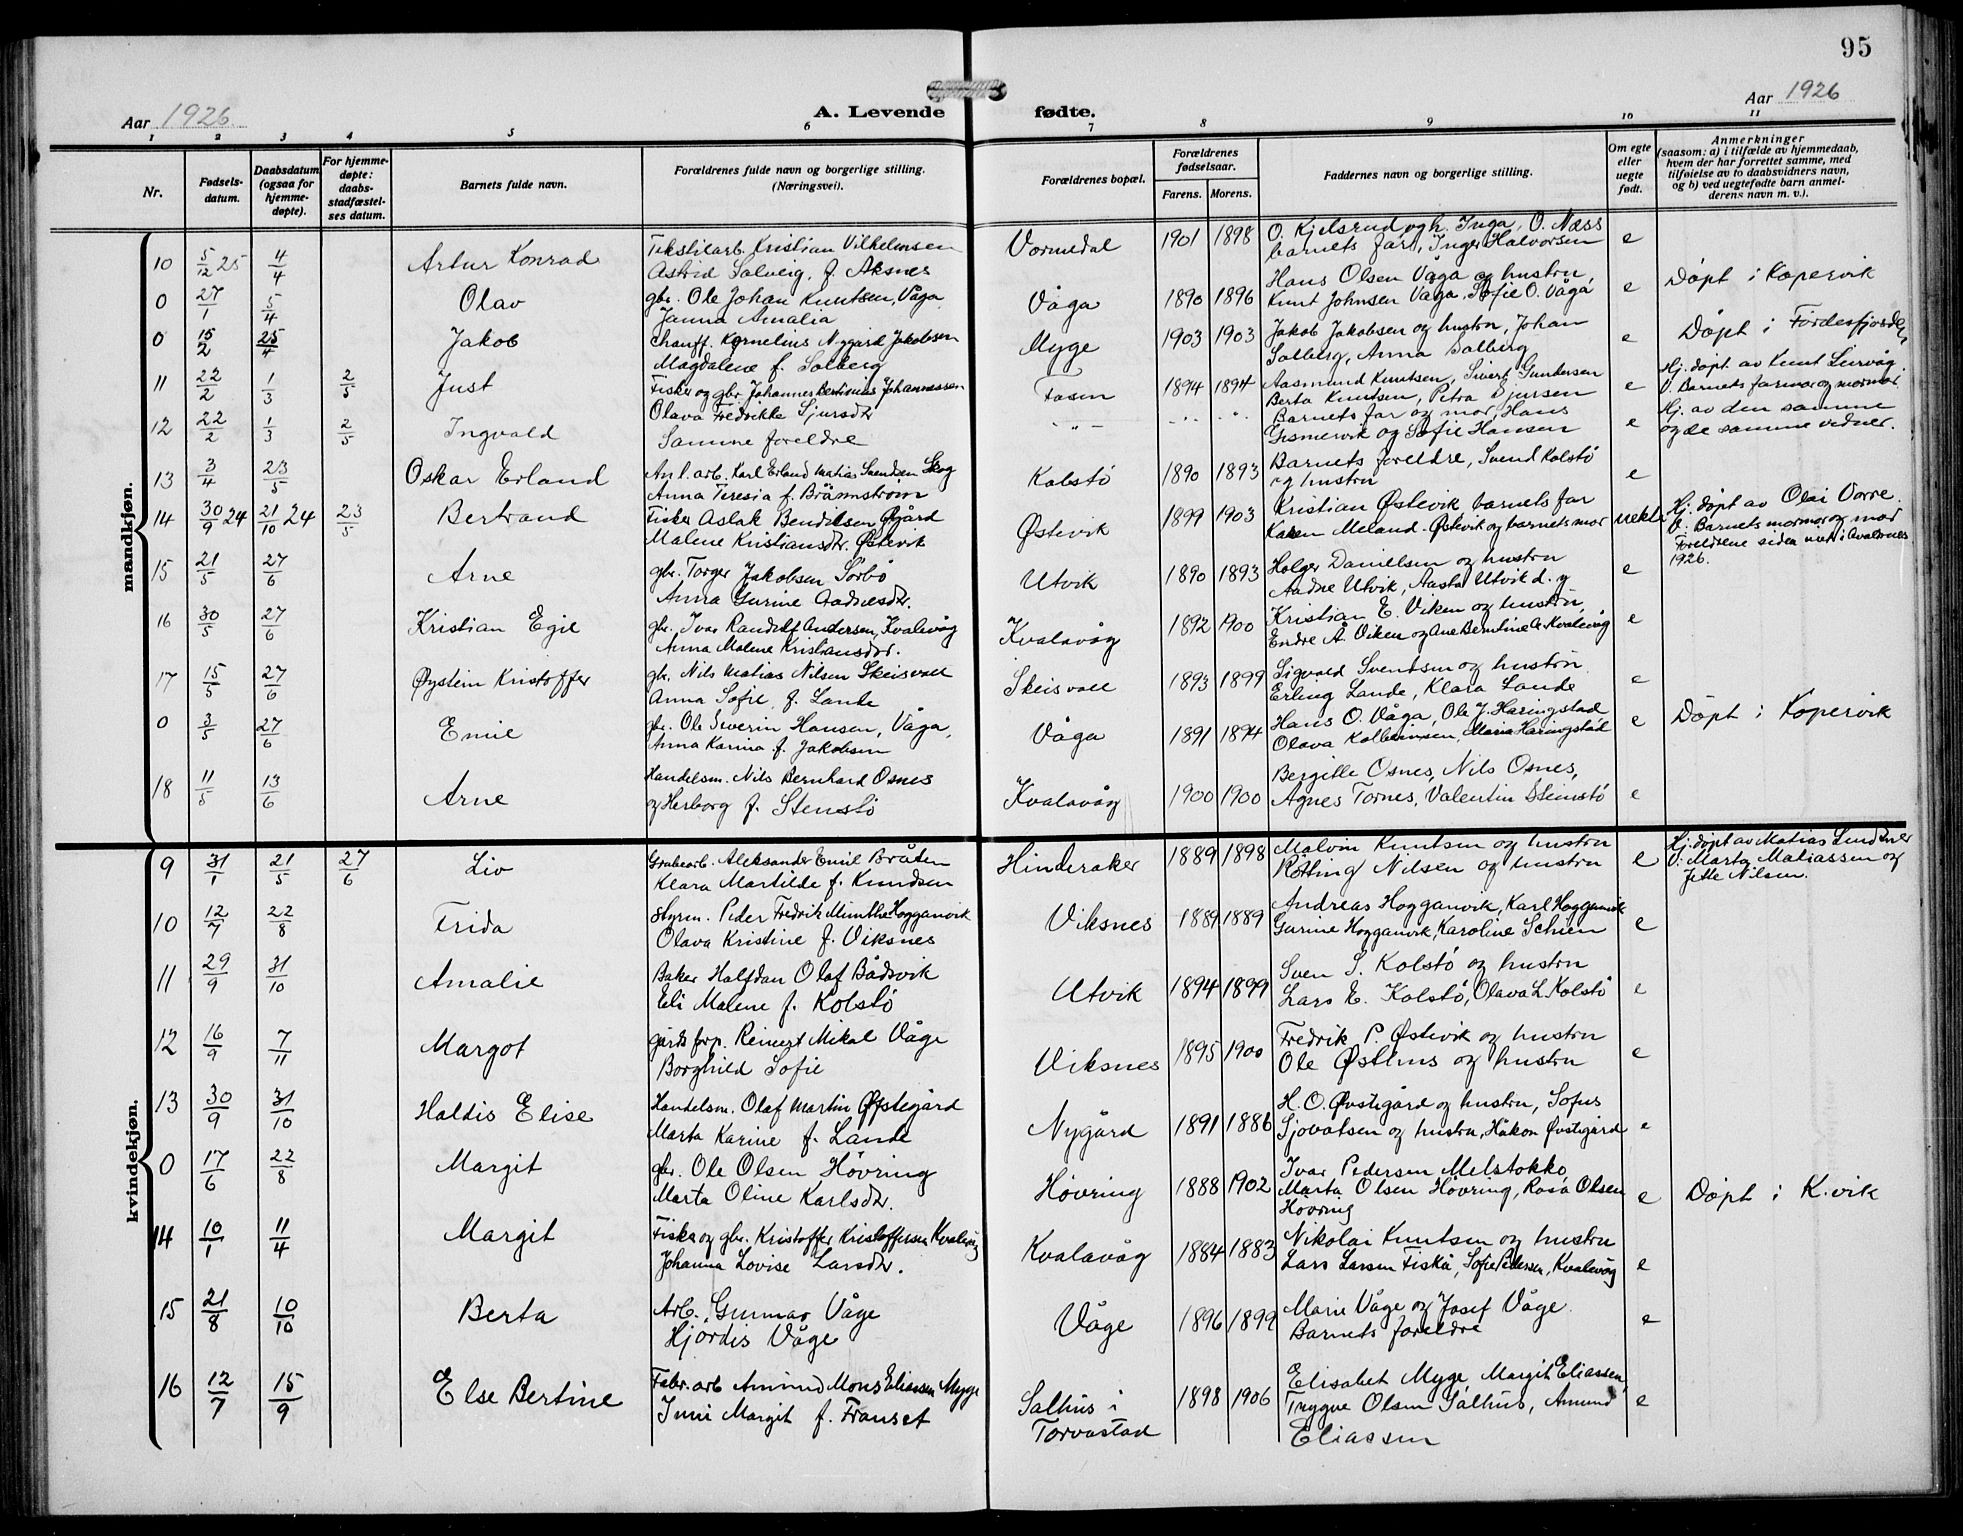 95
Aar 1926
A. Levende fødte.
Aar 1926
1 2 3 4 5 6 7 8 9 10 11
Nr.
Fødsels-
datum.
Daabsdatum
(ogsaa for
hjemme-
døpte).
For hjemme-
døpte:
daabs-
stadfæstel-
ses datum.
Barnets fulde navn.
Forældrenes fulde navn og borgerlige stilling.
(Næringsvei).
Forældrenes bopæl.
Forældrenes
fødselsaar.
Farens. Morens.
Faddernes navn og borgerlige stilling.
Om egte
eller
uegte
født.
Anmerkninger
(saasom: a) i tilfælde av hjemmedaab,
hvem der har forrettet samme, med
tilføielse av to daabsvidners navn,
og b) ved uegtefødte barn anmel-
derens navn m. v.).
mandkjøn.
10 5/12 25 4/4 Artur Konrad Tekstilarb. Kristian Vilhelmsen Vormedal 1901 1898 O. Kjelsrud og h. Inga, O. Næss e
Astrid Solveig, f. Aksnes barnets far, Inger Halvorsen
0 27/1 5/4 Olav gbr. Ole Johan Knutsen, Våga Våga 1890 1896 Hans Olsen Våga og hustru, e Døpt i Kopervik
Janna Amalia Knut Johnsen Våga, Sofie O. Våga
0 15/2 25/4 Jakob Chauff. Kornelius Nygård Jakobsen Myge 1903 1903 Jakob Jakobsen og hustru, Johan e Døpt i Førdesfjorden
Magdalene f. Solberg Solberg, Anna Solberg
11 22/2 1/3 2/5 Just Fisker og gbr. Johannes Bertinius Johannessen Fosen 1894 1894 Aasmund Knutsen, Sivert Gundersen e Hj. døpt av Knut Leirvåg
Olava Fredrikke Sjursdtr Berta Knutsen, Petra Sjursen V. Barnets farmor og mormor
12 22/2 1/3 2/5 Ingvald Samme foreldre - " - " " Barnets far og mor, Hans e Hj. av den samme
Gismervik og Sofie Hansen og de samme vidner.
13 3/4 23/5 Oskar Erland Anl. arb. Karl Erland Matias Svendsen Skog Kolstø 1890 1893 Barnets foreldre, Svend Kolstø e
Anna Teresia f. Brännström og hustru
14 30/9 24 21/10 24 23/5 Bertrand Fisker Aslak Bendiksen Øgård Østevik 1899 1903 Kristian Østevik barnets far uekte Hj. døpt av Olai Vorre.
Malene Kristiansdtr. Østevik Karen Meland-Østevik og barnets mor V. Barnets mormor og mor
Foreldrene siden viet i Avaldsnes
1926.
15 21/5 27/6 Arne gbr. Torger Jakobsen Sørbø Utvik 1890 1893 Holger Danielsen og hustru e
Anna Gurine Aadnesdtr. Aadne Utvik, Aasta Utvik d. y
16 30/5 27/6 Kristian Egil gbr. Ivar Randulf Andersen, Kvalavåg Kvalavåg 1892 1900 Kristian E. Viken og hustru, e
Anna Malene Kristiansdtr. Endre Å. Viken og Ane Berntine A. Kvalevåg
17 15/5 27/6 Øystein Kristoffer gbr. Nils Matias Nilsen Skeisvoll Skeisvoll 1893 1899 Sigvald Sventsen og hustru e
Anna Sofie, f. Lande Erling Lande, Klara Lande
0 3/5 27/6 Emil gbr. Ole Severin Hansen, Våga, Våga 1891 1894 Hans O. Våga, Ole J. Haringstad e Døpt i Kopervik
Anna Karina f. Jakobsen Olava Kolbeinsen, Maria Haringstad
18 11/5 13/6 Arne Handelsm. Nils Bernhard Osnes Kvalavåg 1900 1900 Bergitte Osnes, Nils Osnes, e
og Herborg f. Stensbø Agnes Tornes, Valentin Steinsbø
kvindekjøn.
9 31/1 21/5 27/6 Liv Grubearb. Aleksander Emil Bråten Hinderaker 1889 1898 Malvin Knutsen og hustru e Hj. døpt av Matias
Klara Martilde f. Knudsen Nilsen og hustru V: Marta Matiassen og
Jette Nilsen.
10 12/7 22/8 Frida Styrm. Peder Fredrik Minthe Hogganvik Viksnes 1889 1889 Andreas Hogganvik, Karl Hogganvik e
Olava Kristine f. Viksnes Gurine Hogganvik, Karoline Schien
11 29/9 31/10 Amalie Baker Halfdan Olaf Bådsvik Utvik 1894 1899 Sven S. Kolstø og hustru e
Eli Malene f. Kolstø Lars E. Kolstø, Olava L. Kolstø
12 16/9 7/11 Margot gårdsforp. Reinert Mikal Våge Viksnes 1895 1900 Fredrik P. Østevik og hustru e
Borghild Sofie Ole Østhus og hustru
13 30/9 31/10 Haldis Elise Handelsm. Olaf Martin Øfstegård Nygård 1891 1886 H. O. Øvstegård og hustru, Sofus e
Marta Karine f. Lande Sjovatsen og hustru, Håkon Øvstegård
0 17/6 22/8 Margit gbr. Ole Olsen Høvring Høvring 1888 1902 Ivar Pedersen Melstokke e Døpt i K.vik
Marta Oline Karlsdtr. Marta Olsen Høvring, Rosa Olsen
Høvring
14 10/1 11/4 Margit Fisker og gbr. Kristoffer Kristoffersen Kvalevåg Kvalavåg 1884 1883 Nikolai Knutsen og hustru e
Johanna Lovise Larsdtr. Lars Larsen Fiskå, Sofie Pedersen, Kvalevåg
15 21/8 10/10 Berta Arb. Gunnar Våge Våge 1896 1899 Marie Våge og Josef Våge e
Hjørdis Våge Barnets foreldre
16 12/7 15/9 Else Bertine Fabr. arb Amund Mons Eliassen Myge Salhus i Torvastad 1898 1906 Elisabet Myge Margit Eliassen, e
Margit f. Franset Trygve Olsen Salhus, Amund
Eliassen